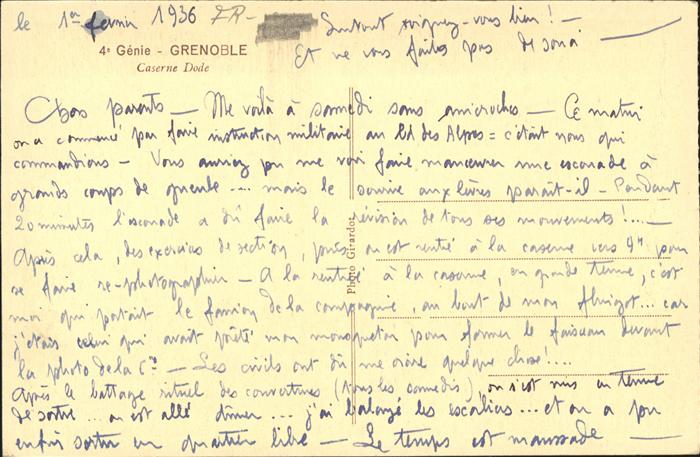 le 1er février 1936 ZR-
Surtout soignez-vous bien ! —
Et ne vous faites pas de souci —
4e Génie - GRENOBLE
Caserne Dode
Chers parents — Me voilà à samedi sans anicroches — Ce matin
on a commencé par faire instruction militaire au Bd des Alpes = c'était nous qui
commandions — Vous auriez pu me voir faire manœuvrer une escouade à
grands coups de gueule .... mais le sourire aux lèvres paraît-il — Pendant
20 minutes l'escouade a dû faire la révision de tous ses mouvements !... —
Après cela, des exercices de section, puis on est rentré à la caserne vers 9h pour
se faire re-photographier — A la rentrée à la caserne, en grande tenue, c'est
moi qui portait le fanion de la compagnie, au bout de mon flingot... car
j'étais celui qui avait prêté mon mousqueton pour former le faisceau devant
la photo de la Cie — Les civils ont dû me croire quelque chose !...
Après le battage rituel des couvertures (tous les samedis), on s'est mis en tenue
de sortie ... on est allé dîner ... j'ai balayé les escaliers ... et on a pu
enfin sortir en quartier libre — Le temps est maussade —
Photo Girardot